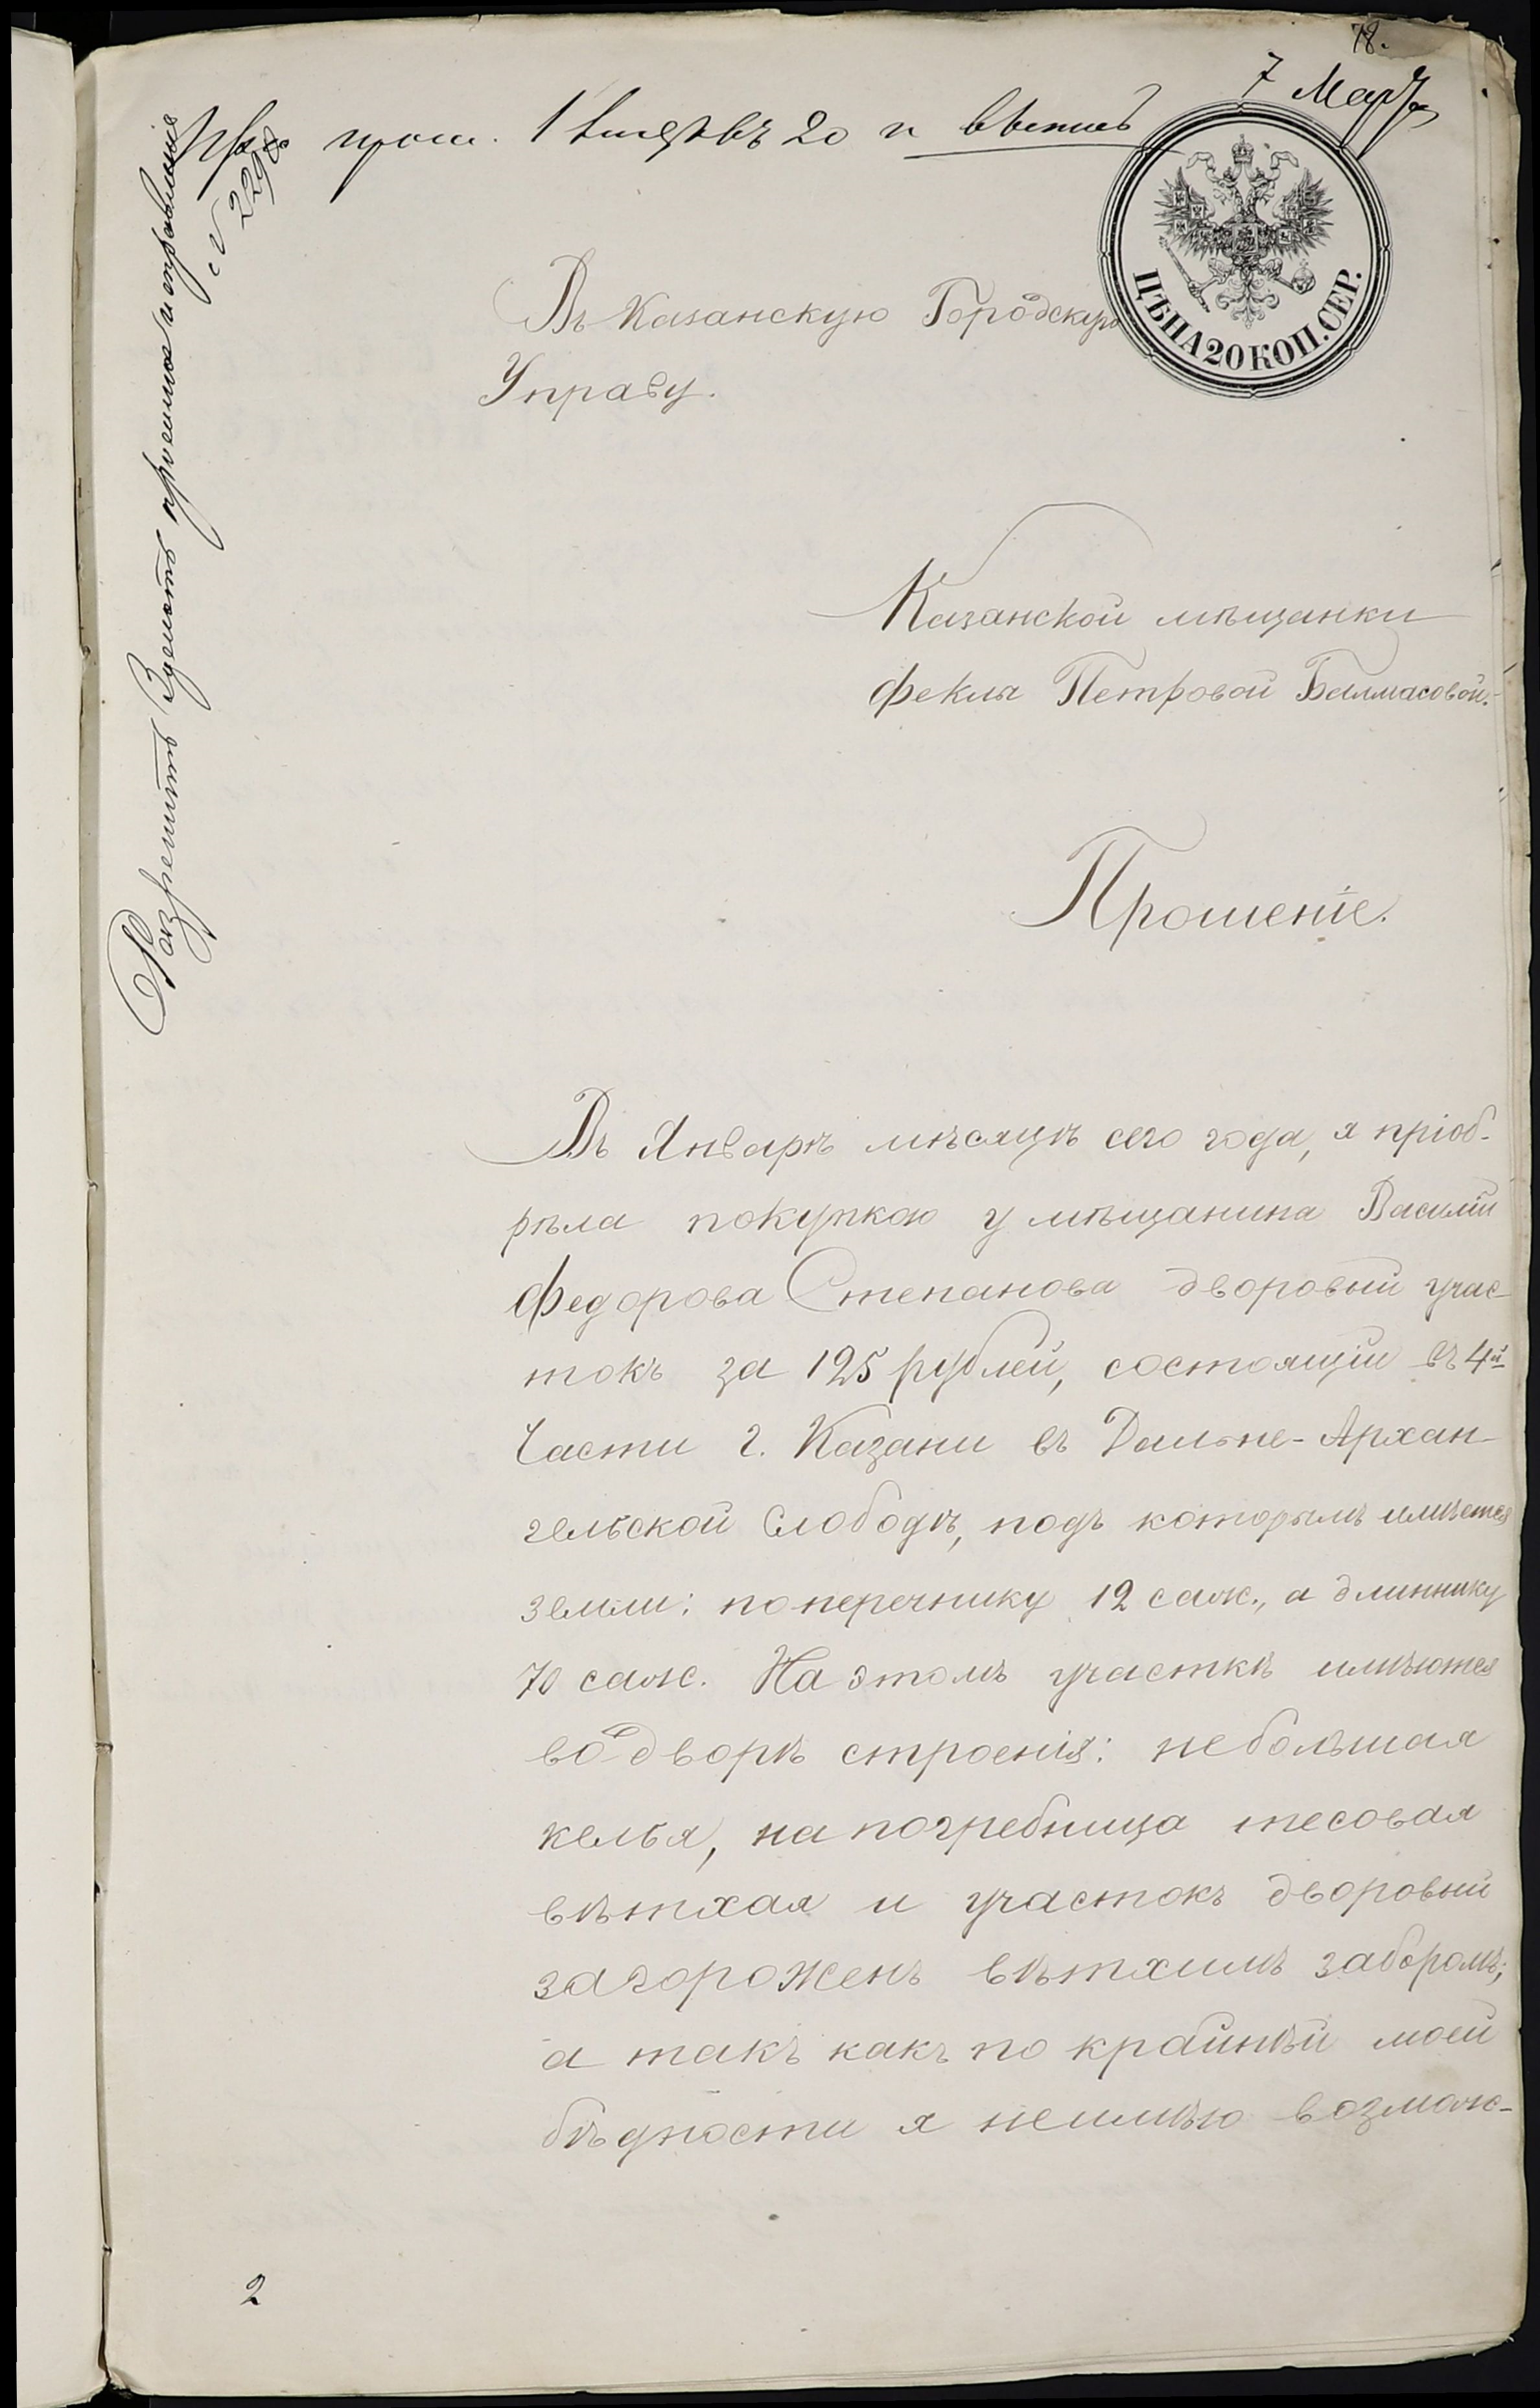 78.
7 Марта
прош. 20
№ 2298
Разрешить прошение и исправления
ЦѢНА 20 КОП. СЕР.
Въ Казанскую Городскую
Управу.
Казанской мѣщанки
Феклы Петровой Балмасовой.
Прошеніе.
Въ Январѣ мѣсяцѣ сего года, я пріоб-
рѣла покупкою у мѣщанина Василія
Федорова Степанова дворовый учас-
токъ за 125 рублей, состоящій въ 4й
Части г. Казани въ Дальне-Архан-
гельской Слободѣ, подъ которымъ имѣется
земли: поперечнику 12 саж., а длиннику
70 саж. На этомъ участкѣ имѣются
во дворѣ строенія: небольшая
келья, на погребница тесовая
вѣтхая и участокъ дворовый
загороженъ вѣтхимъ заборомъ;
а такъ какъ по крайнѣй моей
бѣдности я неимѣю возмож-
2